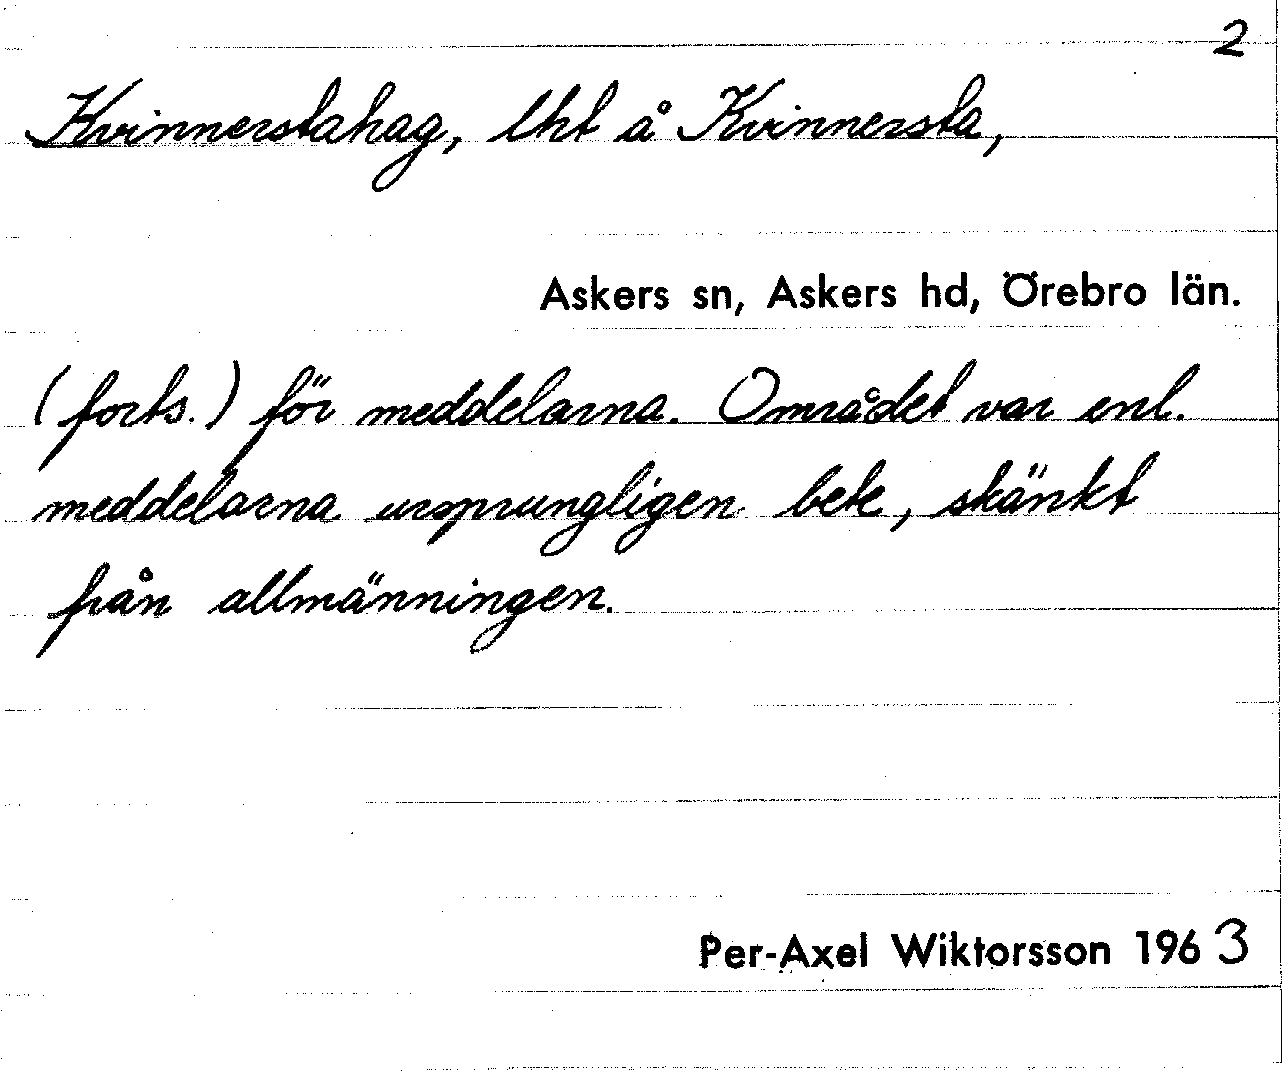 2
Kvinnerstahag, lht å Kvinnersta,
Askers sn, Askers hd, Örebro län.
(forts.) för meddelarna. Området var enl.
meddelarna ursprungligen bete, skänkt
från allmänningen.
Per-Axel Wiktorsson 1963